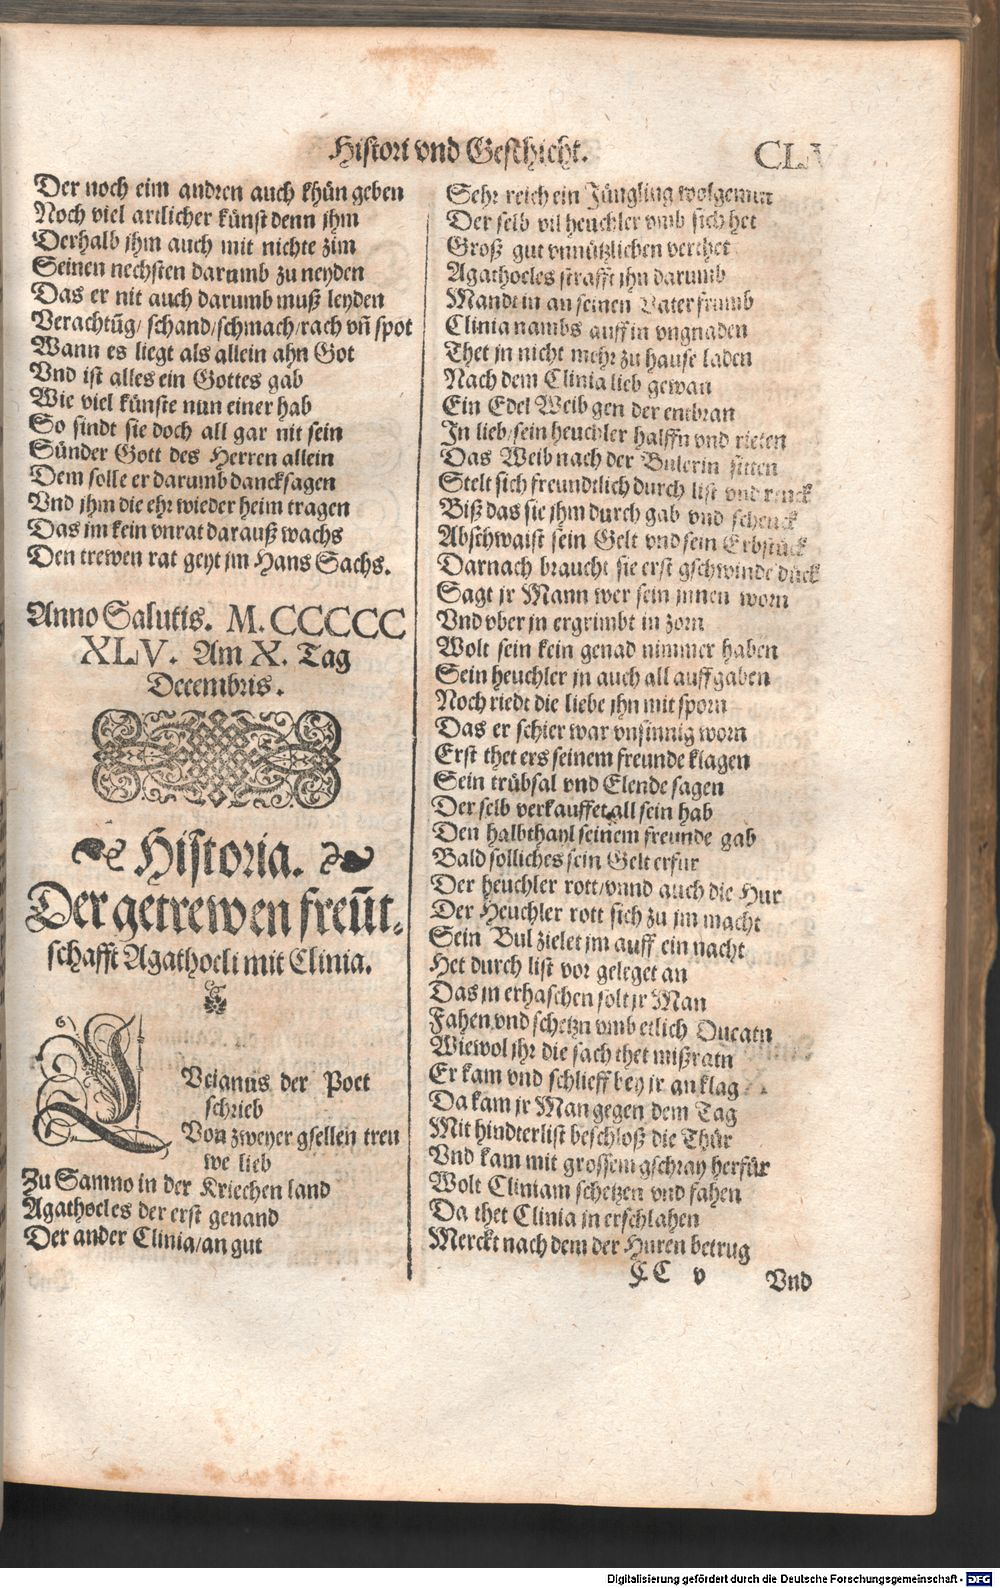 Histori vnd Geschicht.
CLV
Der noch eim andren auch khün geben
Noch viel artlicher künst denn jhm
Derhalb jhm auch mit nichte zim
Seinen nechsten darumb zu neyden
Das er nit auch darumb muß leyden
Verachtũg/ schand/schmach/rach vñ spot
Wann es liegt als allein ahn Got
Vnd ist alles ein Gottes gab
Wie viel künste nun einer hab
So sindt sie doch all gar nit sein
Sünder Gott des Herren allein
Dem solle er darumb dancksagen
Vnd jhm die ehr wieder heim tragen
Das im kein vnrat darauß wachs
Den trewen rat geyt jm Hans Sachs.
Anno Salutis. M. CCCCC
XLV. Am X. Tag
Decembris.
Historia.
Der getrewen freüt-
schafft Agathocli mit Clinia.
LVcianus der Poet
schrieb
Von zweyer gsellen treu
we lieb
Zu Samno in der Kriechen land
Agathocles der erst genand
Der ander Clinia/an gut
Sehr reich ein Jüngling wolgemut
Der selb vil heuchler vmb sich het
Groß gut vnnützlichen verthet
Agathocles strafft jhn darumb
Mandt in an seinen Vater frumb
Clinia nambs auff in vngnaden
Thet jn nicht mehr zu hause laden
Nach dem Clinia lieb gewan
Ein Edel Weib gen der entbran
In lieb/sein heuchler halffn vnd rieten
Das Weib nach der Bulerin sitten
Stelt sich freundtlich durch list vnd renck
Biß das sie jhm durch gab vnd schenck
Abschwaist sein Gelt vnd sein Erbstück
Darnach braucht sie erst gschwinde dück
Sagt jr Mann wer sein jnnen worn
Vnd vber jn ergrimbt in zorn
Wolt sein kein genad nimmer haben
Sein heuchler jn auch all auffgaben
Noch riedt die liebe jhn mit sporn
Das er schier war vnsinnig worn
Erst thet ers seinem freunde klagen
Sein trübsal vnd Elende sagen
Der selb verkauffet all sein hab
Den halbthayl seinem freunde gab
Bald solliches sein Gelt erfur
Der heuchler rott/vnnd auch die Hur
Der Heuchler rott sich zu jm macht
Sein Bul zielet jm auff ein nacht
Het durch list vor geleget an
Das jn erhaschen solt jr Man
Fahen vnd schetzn vmb etlich Ducatn
Wiewol jhr die sach thet mißratn
Er kam vnd schlieff bey jr an klag
Da kam jr Man gegen dem Tag
Mit hindterlist beschloß die Thür
Vnd kam mit grossem gschray herfür
Wolt Cliniam schetzen vnd fahen
Da thet Clinia jn erschlahen
Merckt nach dem der Huren betrug
CC v
Vnd
Digitalisierung gefördert durch die Deutsche Forschungsgemeinschaft - DFG